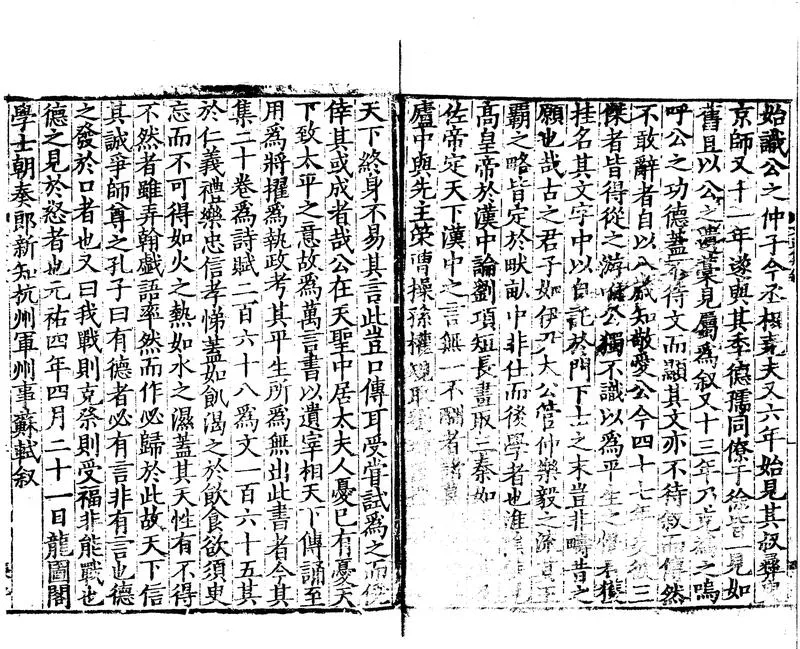 始識公之仲子今丞相堯夫又六年始見其叔彝叟
京師又十一年遂與其季德孺同僚于徐皆一見如
舊且以公之遺藁見屬為叙又十三年乃克為之嗚
呼公之功德蓋不待文而顯其文亦不待叙而傳然
不敢辭者自以八歲知敬愛公今四十七年矣彼三
傑者皆得從之游而公獨不識以為平生之恨若獲
挂名其文字中以自託於門下士之末豈非疇昔之
願也哉古之君子如伊尹太公管仲樂毅之流其王
霸之略皆定於畎畝中非仕而後學者也淮陰
高皇帝於漢中論劉項短長畫取三秦如
佐帝定天下漢中之言無一不酬者諸葛
廬中與先主策曹操孫權規取
天下終身不易其言此豈口傳耳受嘗試為之而僥
倖其或成者哉公在天聖中居太夫人憂已有憂天
下致太平之意故為萬言書以遺宰相天下傳誦至
用為將擢為執政考其平生所為無出此書者今其
集二十卷為詩賦二百六十八為文一百六十五其
於仁義禮樂忠信孝悌蓋如飢渴之於飲食欲須臾
忘而不可得如火之熱如水之濕蓋其天性有不得
不然者雖弄翰戲語率然而作必歸於此故天下信
其誠爭師尊之孔子曰有德者必有言非有言也德
之發於口者也又曰我戰則克祭則受福非能戰也
德之見於怒者也元祐四年四月二十一日龍圖閣
學士朝奏郎新知杭州軍州事蘇軾叙